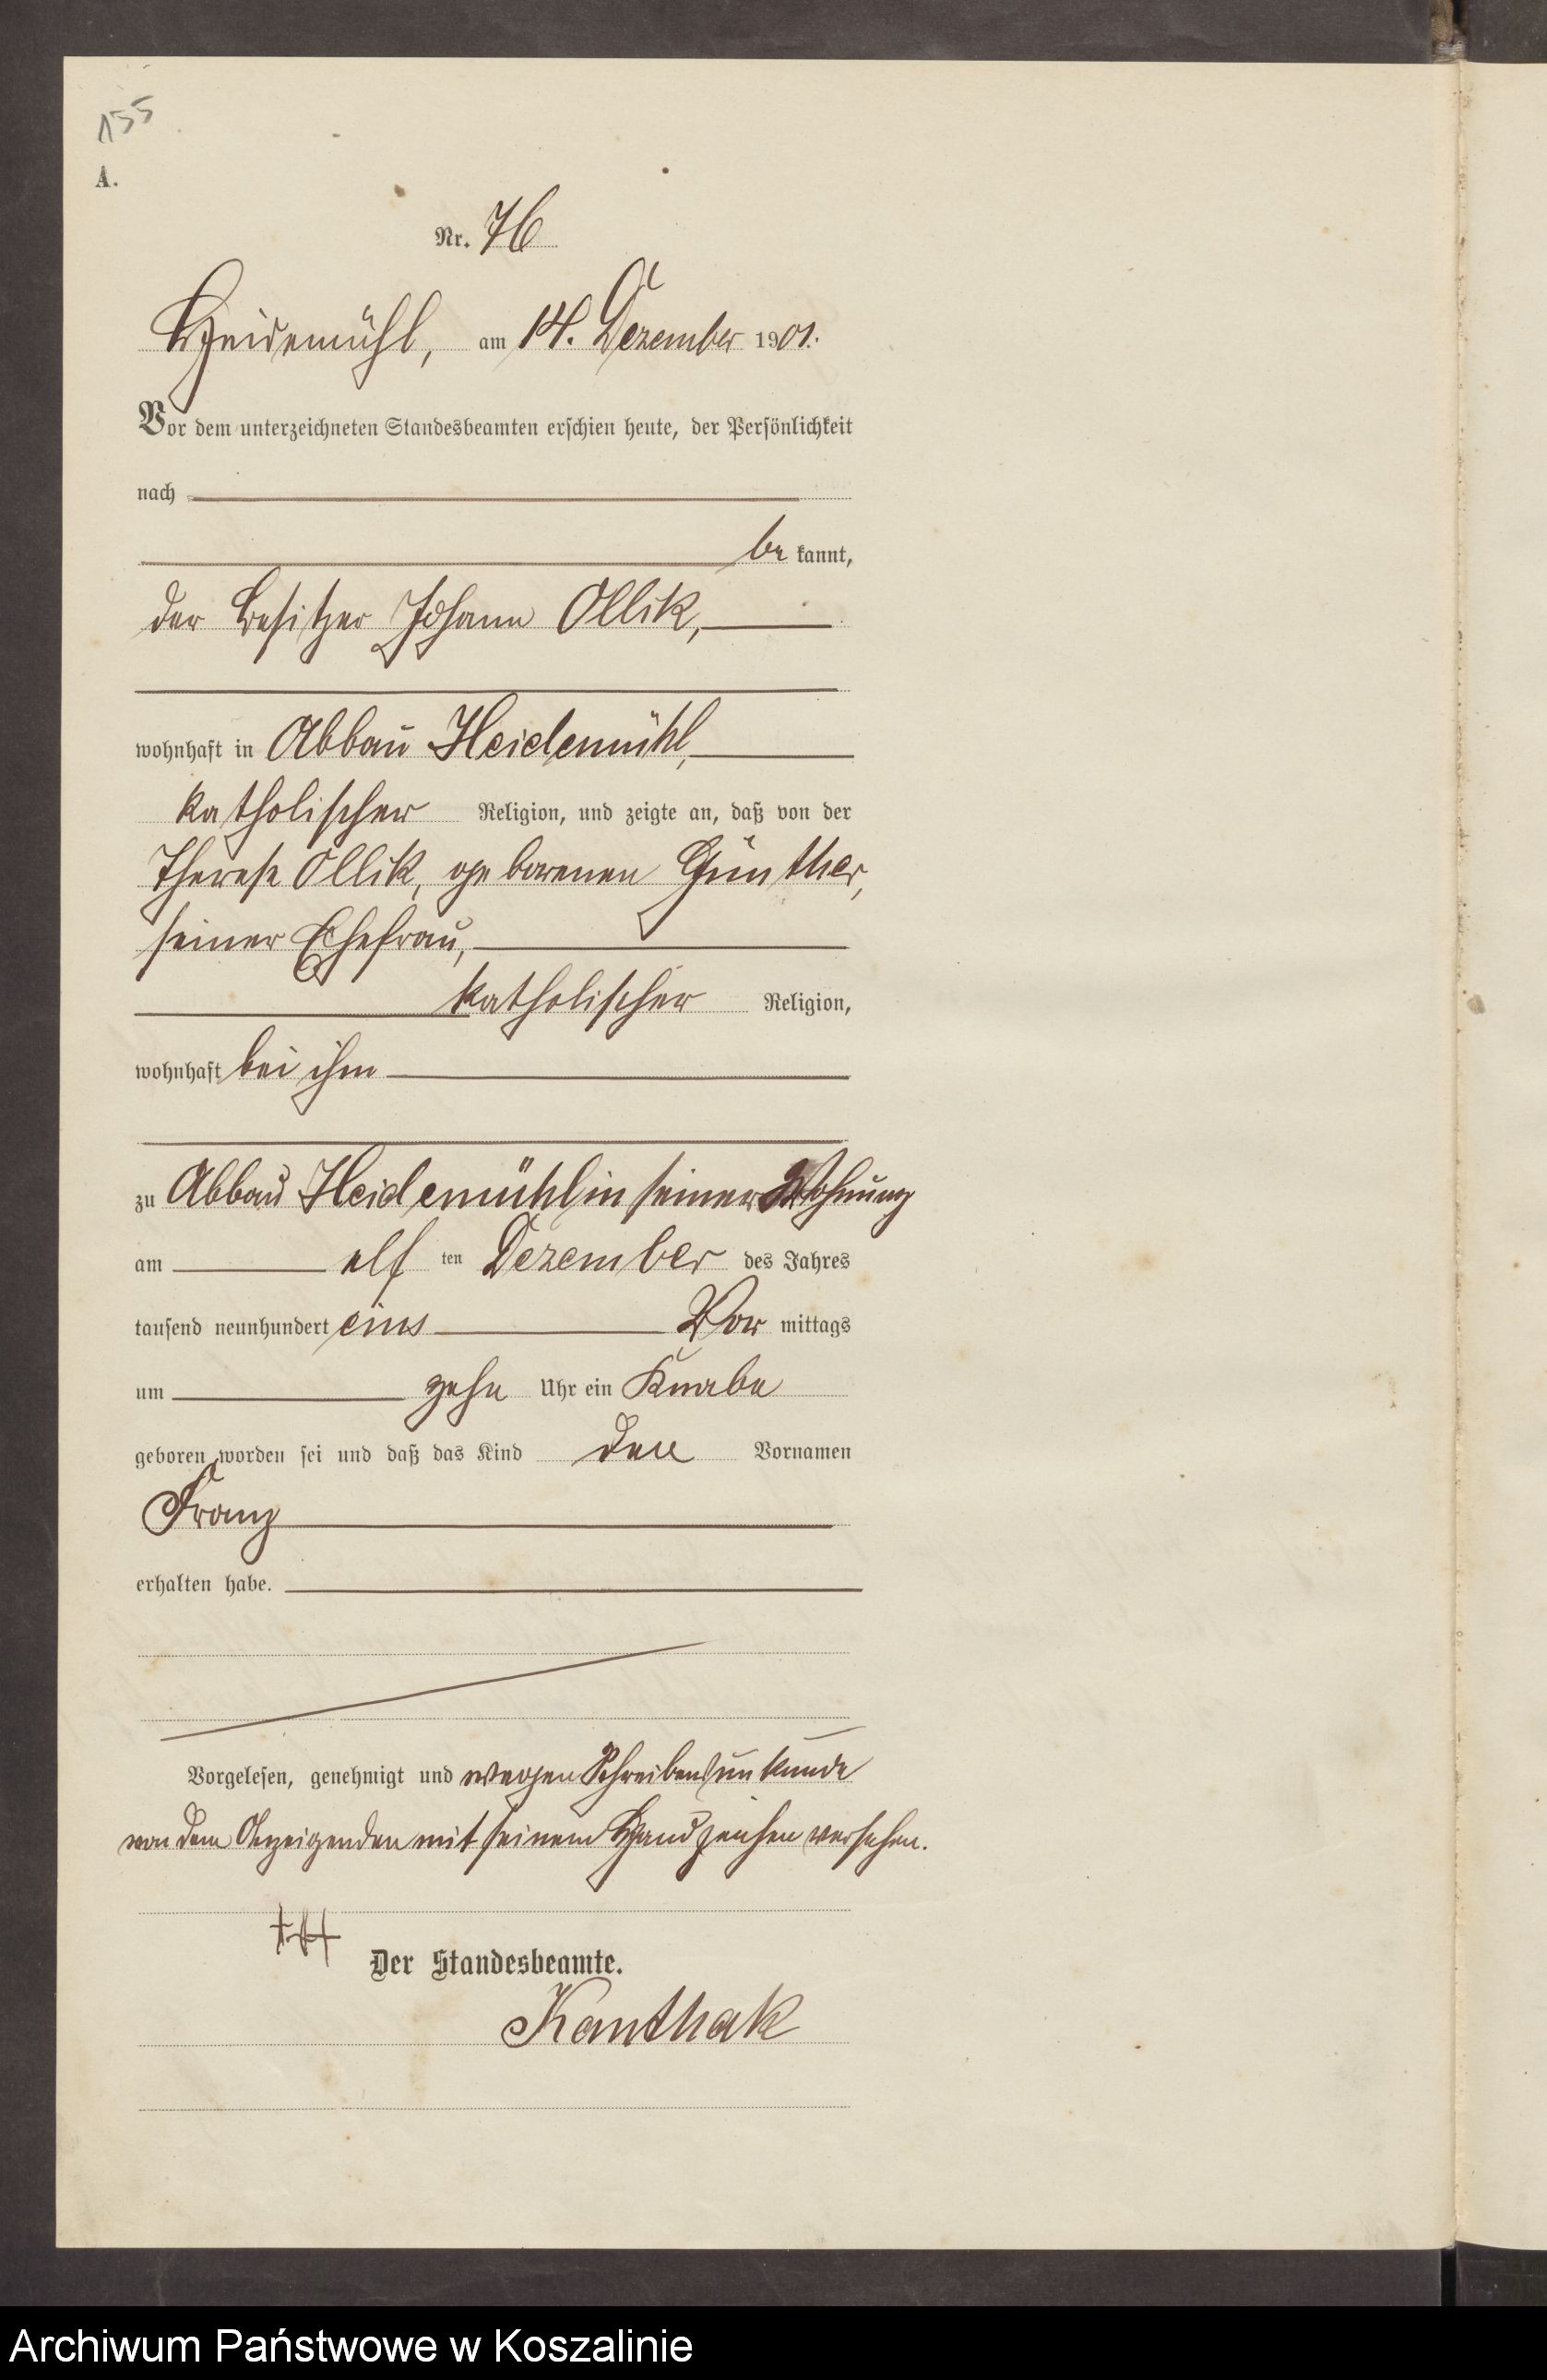 155
A.
Nr. 76
Heidemühl, am 14. Dezember 1901.
Vor dem unterzeichneten Standesbeamten erschien heute, der Persönlichkeit
nach
be kannt,
der Besitzer Johann Ollik,
wohnhaft in Abbau Heidemühl,
katholischer Religion, und zeigte an, daß von der
Therese Ollik, geborenen Günther,
seiner Ehefrau,
katholischer Religion,
wohnhaft bei ihm
zu Abbau Heidemühl in seiner Wohnung
am elf ten Dezember des Jahres
tausend neunhundert eins Vor mittags
um zehn Uhr ein Knabe
geboren worden sei und daß das Kind den Vornamen
Franz
erhalten habe.
Vorgelesen, genehmigt und wegen Schreibensunkunde
von dem Anzeigenden mit seinem Handzeichen versehen.
+++
Der Standesbeamte.
Kanthak
Archiwum Państwowe w Koszalinie